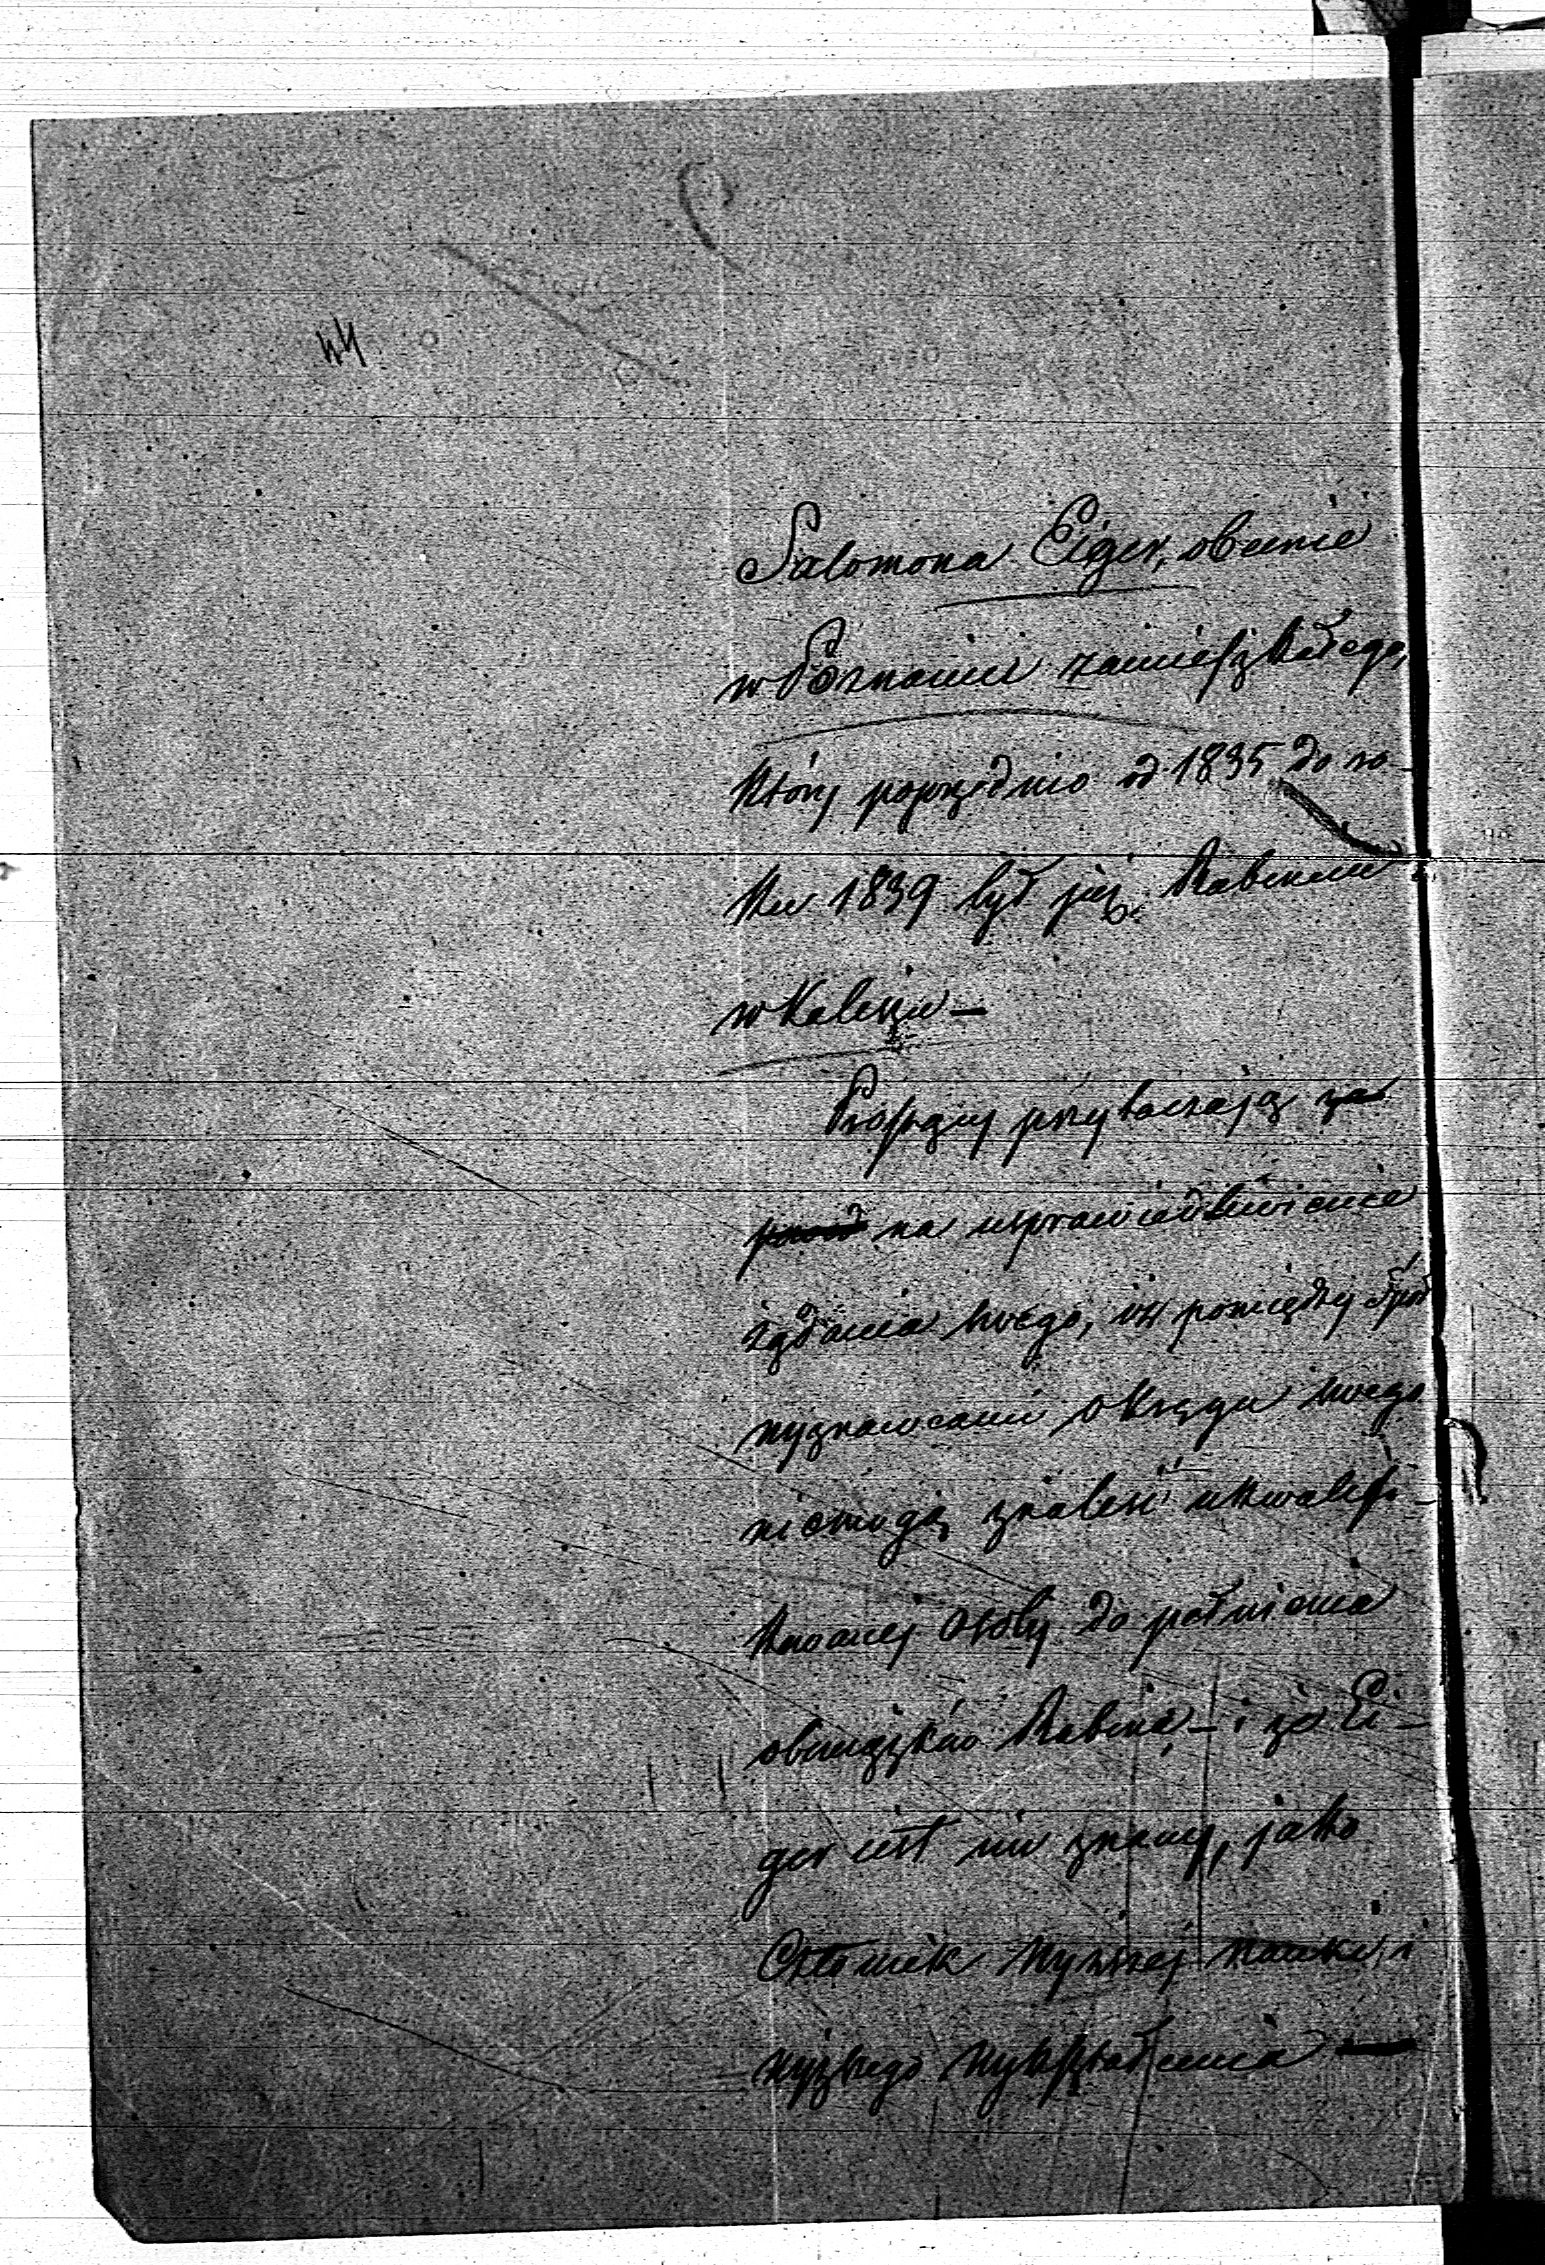 44
Salomona Eiger, obecnie
w Poznaniu zamieszkałego,
który poprzednio od 1835 do ro-
ku 1839 był już Rabinem
w Kaliszu —
Proszący przytaczają za
na usprawiedliwienie
żądania swego, iż pomiędzy współ
wyznawcami okręgu swego
nie mogą znaleść ukwalifi-
kowanej osoby do pełnienia
obowiązków Rabina — i że Ei-
ger jest im znany, jako
Człowiek wyższej nauki i
wyższego wykształcenia —